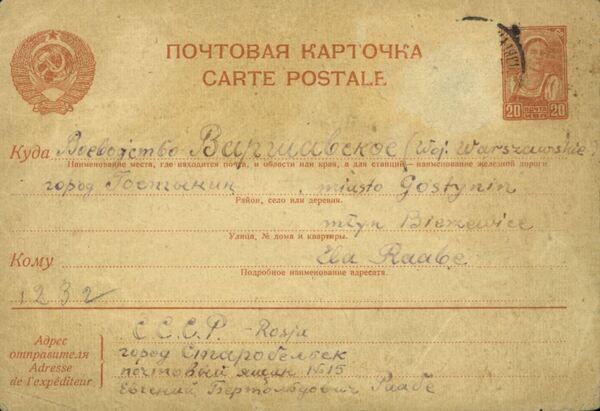 ПОЧТОВАЯ КАРТОЧКА
CARTE POSTALE
20 ПОЧТА 20
СССР
Куда Воеводство Варшавское (Woj. Warszawskie)
Наименование места, где находится почта, и области или края, а для станций—наименование железной дороги
город Гостынин, miasto Gostynin
Район, село или деревня.
młyn Bieżewice
Улица, № дома и квартиры.
Кому Ela Raabe
Подробное наименование адресата.
1232
Адрес отправителя
Adresse de l'expéditeur
С.С.С.Р. - Rosja
город Старобельск
почтовый ящик №15
Евгений Бертольдович Раабе